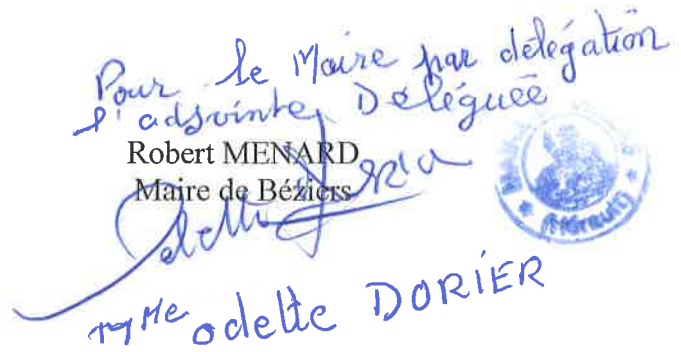 Pour le Maire par délégation
l'adjointe Déléguée
Robert MENARD
Maire de Béziers
Odette Dorier
(Hérault)
Mme odette DORIER